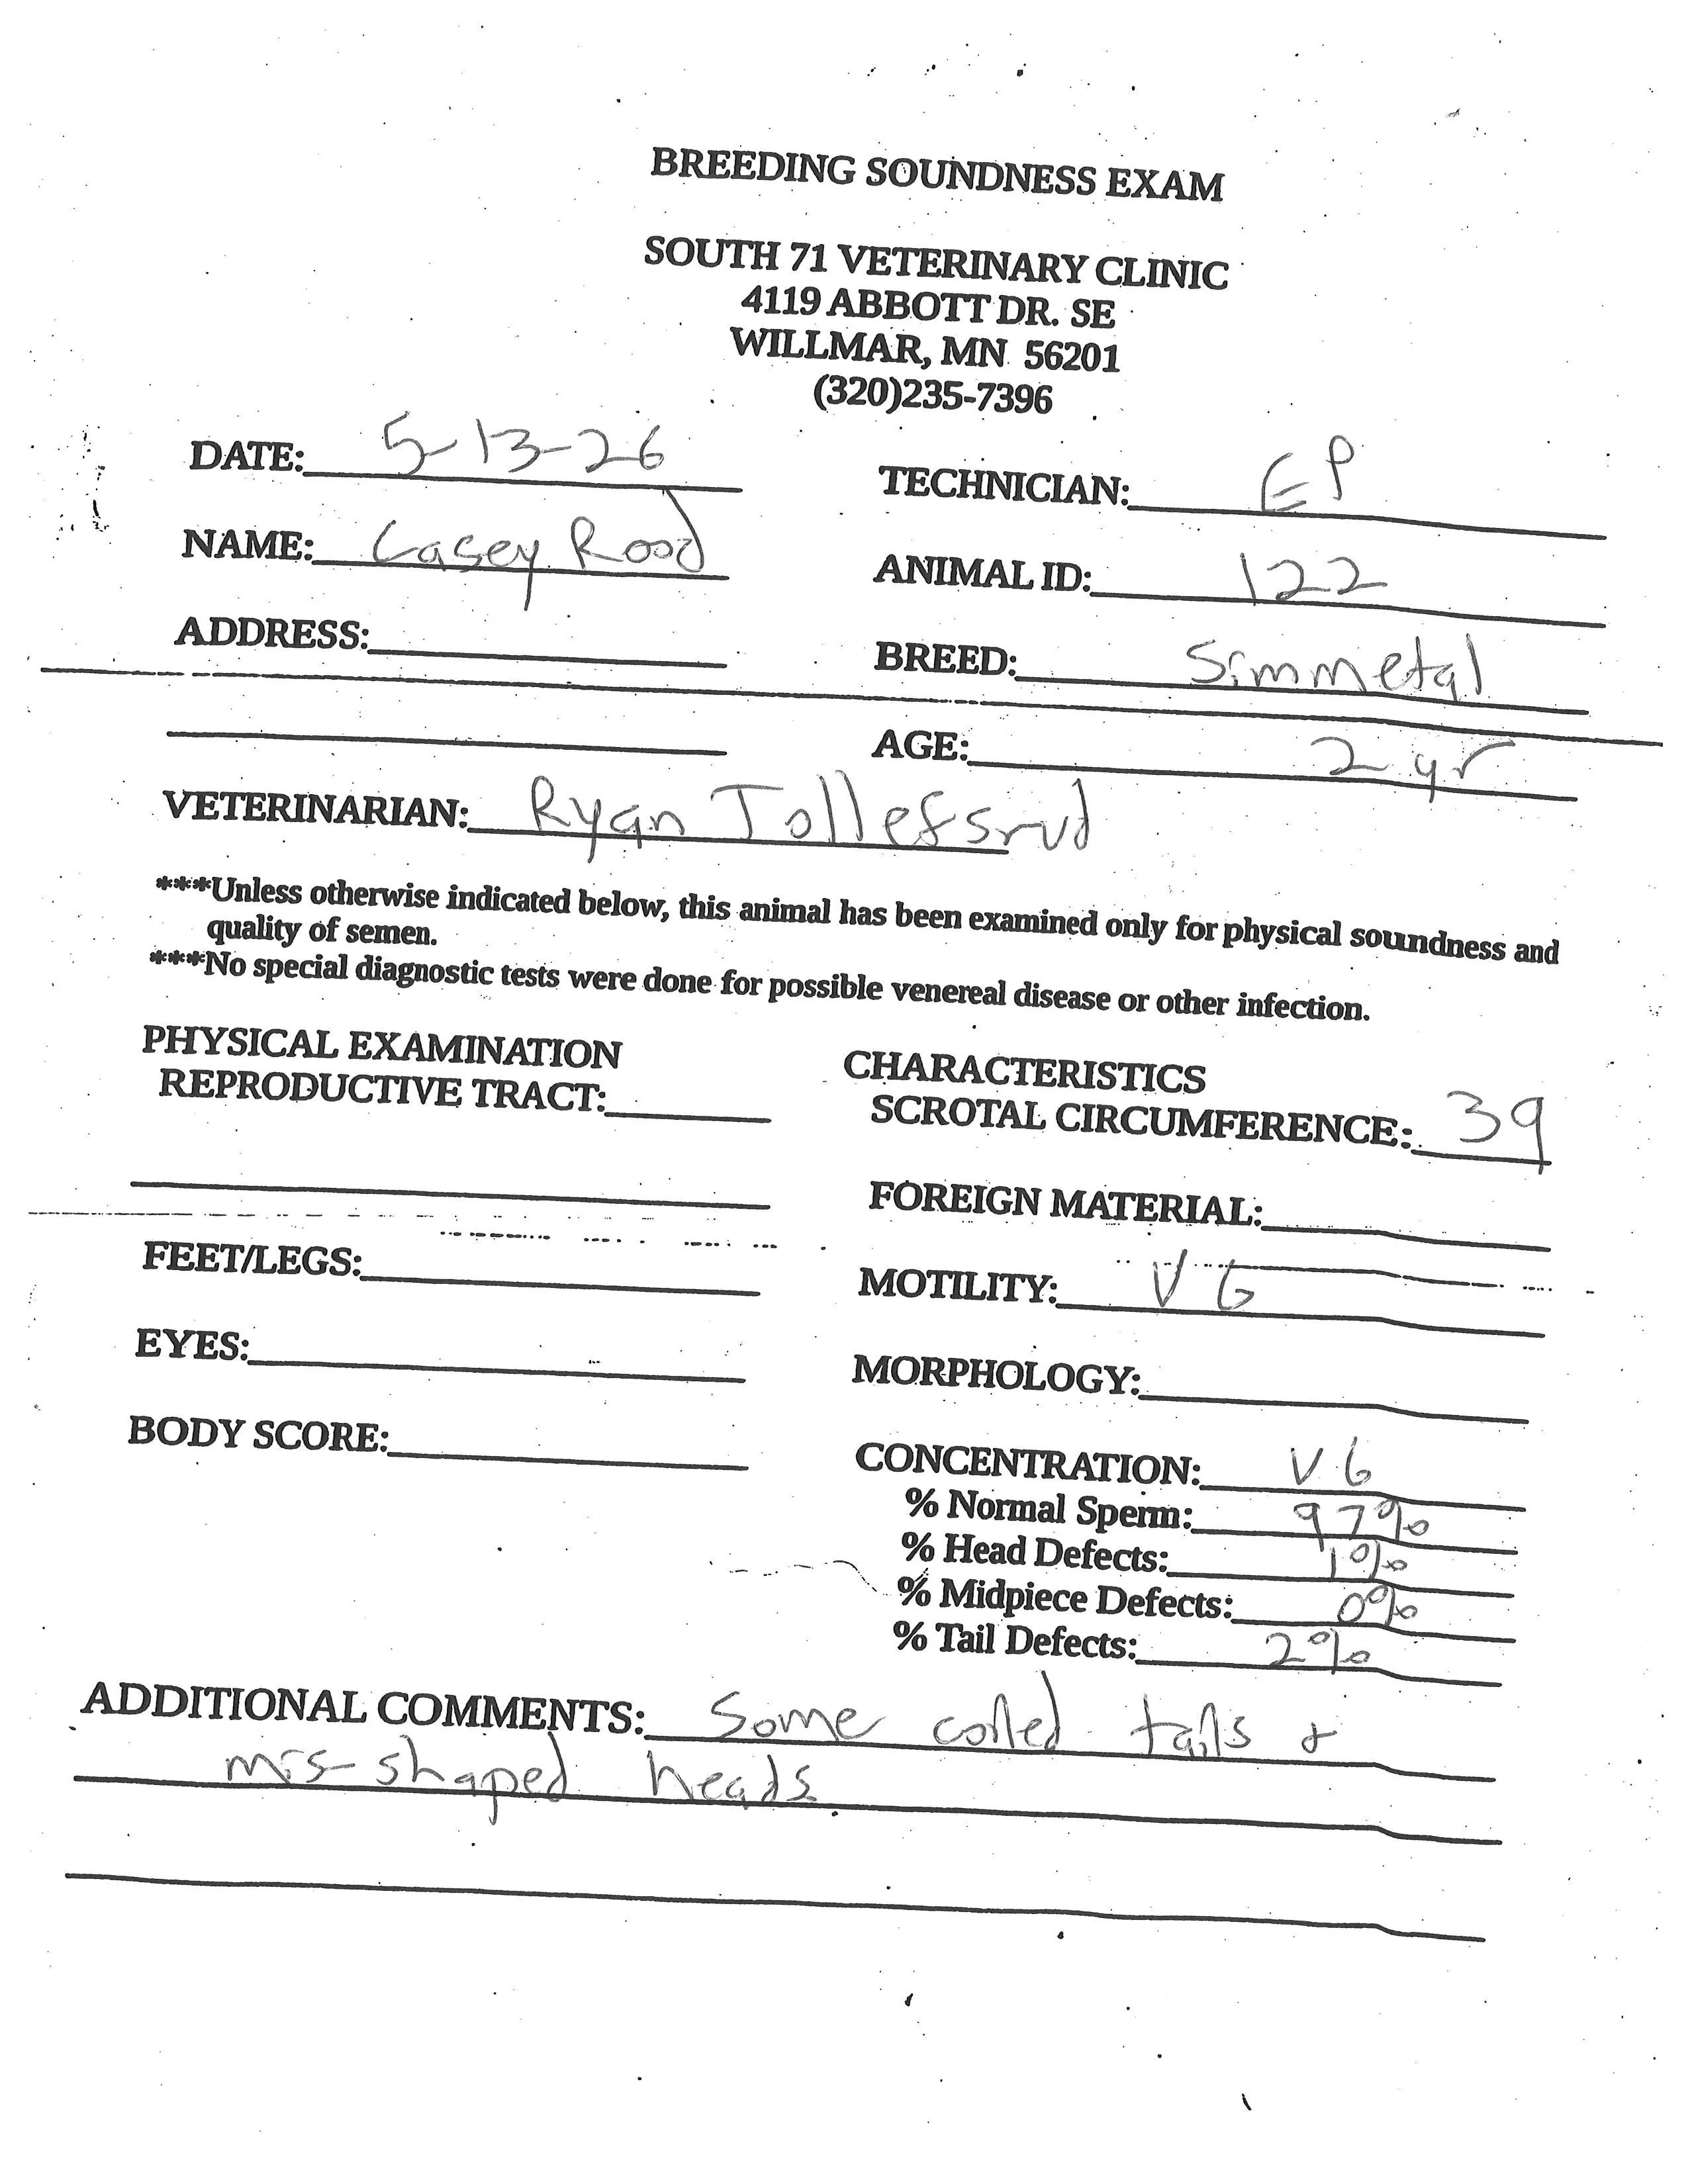 BREEDING SOUNDNESS EXAM
SOUTH 71 VETERINARY CLINIC
4119 ABBOTT DR. SE
WILLMAR, MN 56201
(320)235-7396
DATE: 5-13-26
TECHNICIAN: EP
NAME: Casey Rood
ANIMAL ID: 122
ADDRESS:
BREED: Simmetal
AGE: 2 yr
VETERINARIAN: Ryan Tollefsrud
***Unless otherwise indicated below, this animal has been examined only for physical soundness and
quality of semen.
***No special diagnostic tests were done for possible venereal disease or other infection.
PHYSICAL EXAMINATION
REPRODUCTIVE TRACT:
CHARACTERISTICS
SCROTAL CIRCUMFERENCE: 39
FOREIGN MATERIAL:
FEET/LEGS:
MOTILITY: VG
EYES:
MORPHOLOGY:
BODY SCORE:
CONCENTRATION: VG
% Normal Sperm: 97%
% Head Defects: 1%
% Midpiece Defects: 0%
% Tail Defects: 2%
ADDITIONAL COMMENTS: Some coiled tails +
mis-shaped heads